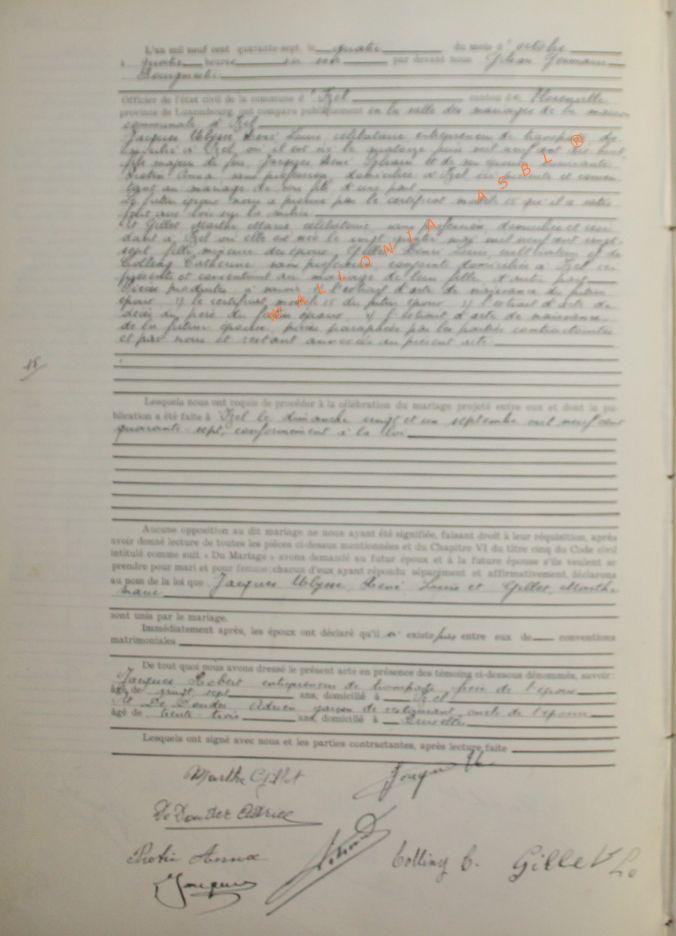 L'an mil neuf cent quarante-sept, le quatre du mois d'octobre
à quatre heures du soir par devant nous
Officier de l'état civil de la commune d'Izel canton de Florenville
province de Luxembourg, ont comparu publiquement en la salle des mariages de la maison
communale d'Izel
Jacques Ulysse René Louis célibataire entrepreneur de transport, do
micilié à Izel, où il est né le
fils majeur de feu Jacques René et de son épouse survivante
Anna sans profession, domiciliée à Izel ici présente et consen
tant au mariage de son fils d'une part
Le futur époux nous a prouvé par le certificat modèle 15 qu'il a satis
fait aux lois sur la milice
Et Gillet Marthe Marie célibataire sans profession, domiciliée et rési
dant à Izel où elle est née le vingt mai mil neuf cent vingt
sept fille majeure des époux Gillet Louis cultivateur et de
Colling Catherine sans profession conjoints domiciliés à Izel ici
présents et consentant au mariage de leur fille d'autre part
Pièces produites à savoir 1/ l'extrait d'acte de naissance du futur
époux 2/ le certificat modèle 15 du futur époux 3/ l'extrait d'acte de
décès du père du futur époux 4/ l'extrait d'acte de naissance
de la future épouse, pièces paraphées par les parties contractantes
et par nous et restant annexées au présent acte.
WALLONIA ASBL ®
Lesquels nous ont requis de procéder à la célébration du mariage projeté entre eux et dont la pu-
blication a été faite à Izel le dimanche vingt et un septembre mil neuf cent
quarante-sept, conformément à la loi
Aucune opposition au dit mariage ne nous ayant été signifiée, faisant droit à leur réquisition, après
avoir donné lecture de toutes les pièces ci-dessus mentionnées et du Chapitre VI du titre cinq du Code civil
intitulé comme suit « Du Mariage » avons demandé au futur époux et à la future épouse s'ils veulent se
prendre pour mari et pour femme; chacun d'eux ayant répondu séparément et affirmativement, déclarons
au nom de la loi que Jacques Ulysse, René Louis et Gillet, Marthe
Marie
sont unis par le mariage.
Immédiatement après, les époux ont déclaré qu'il n'existe pas entre eux de conventions
matrimoniales
De tout quoi nous avons dressé le présent acte en présence des témoins ci-dessous dénommés, savoir:
Jacques Robert entrepreneur de transports frère de l'époux
âgé de vingt sept ans, domicilié à Izel
et De Donder Adrien garçon de restaurant, oncle de l'épouse
âgé de trente-trois ans, domicilié à Bruxelles
Lesquels ont signé avec nous et les parties contractantes, après lecture faite
Marthe Gillet
De Donder Adrien
Anna
Colling C.
Gillet Lo
Jacques